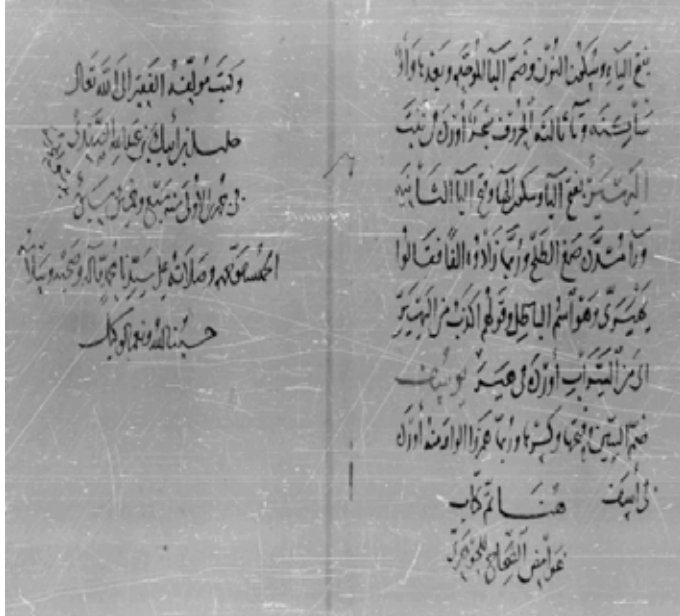 بفتح الياء وسكون النون وضم البا الموحدة وبعدها واو
ساكنة وتآ ثالثة الحروف شجر أوردك في نبت
بفتح اليا وسكون الها وفتح اليا الثانية
ورآ مشددة صمغ الطلح وربما زادوه الفا فقالوا
يهيرى وهو اسم الباطل وقولهم اكذب من اليهير
اوردك في هير يوسف
بضم السين وفتحها وكسرها وربما همزوا الواو منه اوردك
في أسف هنا تم كتاب
غوامض الصحاح للجوهري
وكتب مولفه الفقير الى الله تعالى
خليل بن أيبك بن عبد الله الصفدي
في الاولى سنة سبع وخمسين
الحمد لله وصلاته على سيدنا محمد وآله وصحبه وسلامه
حسبنا الله ونعم الوكيل